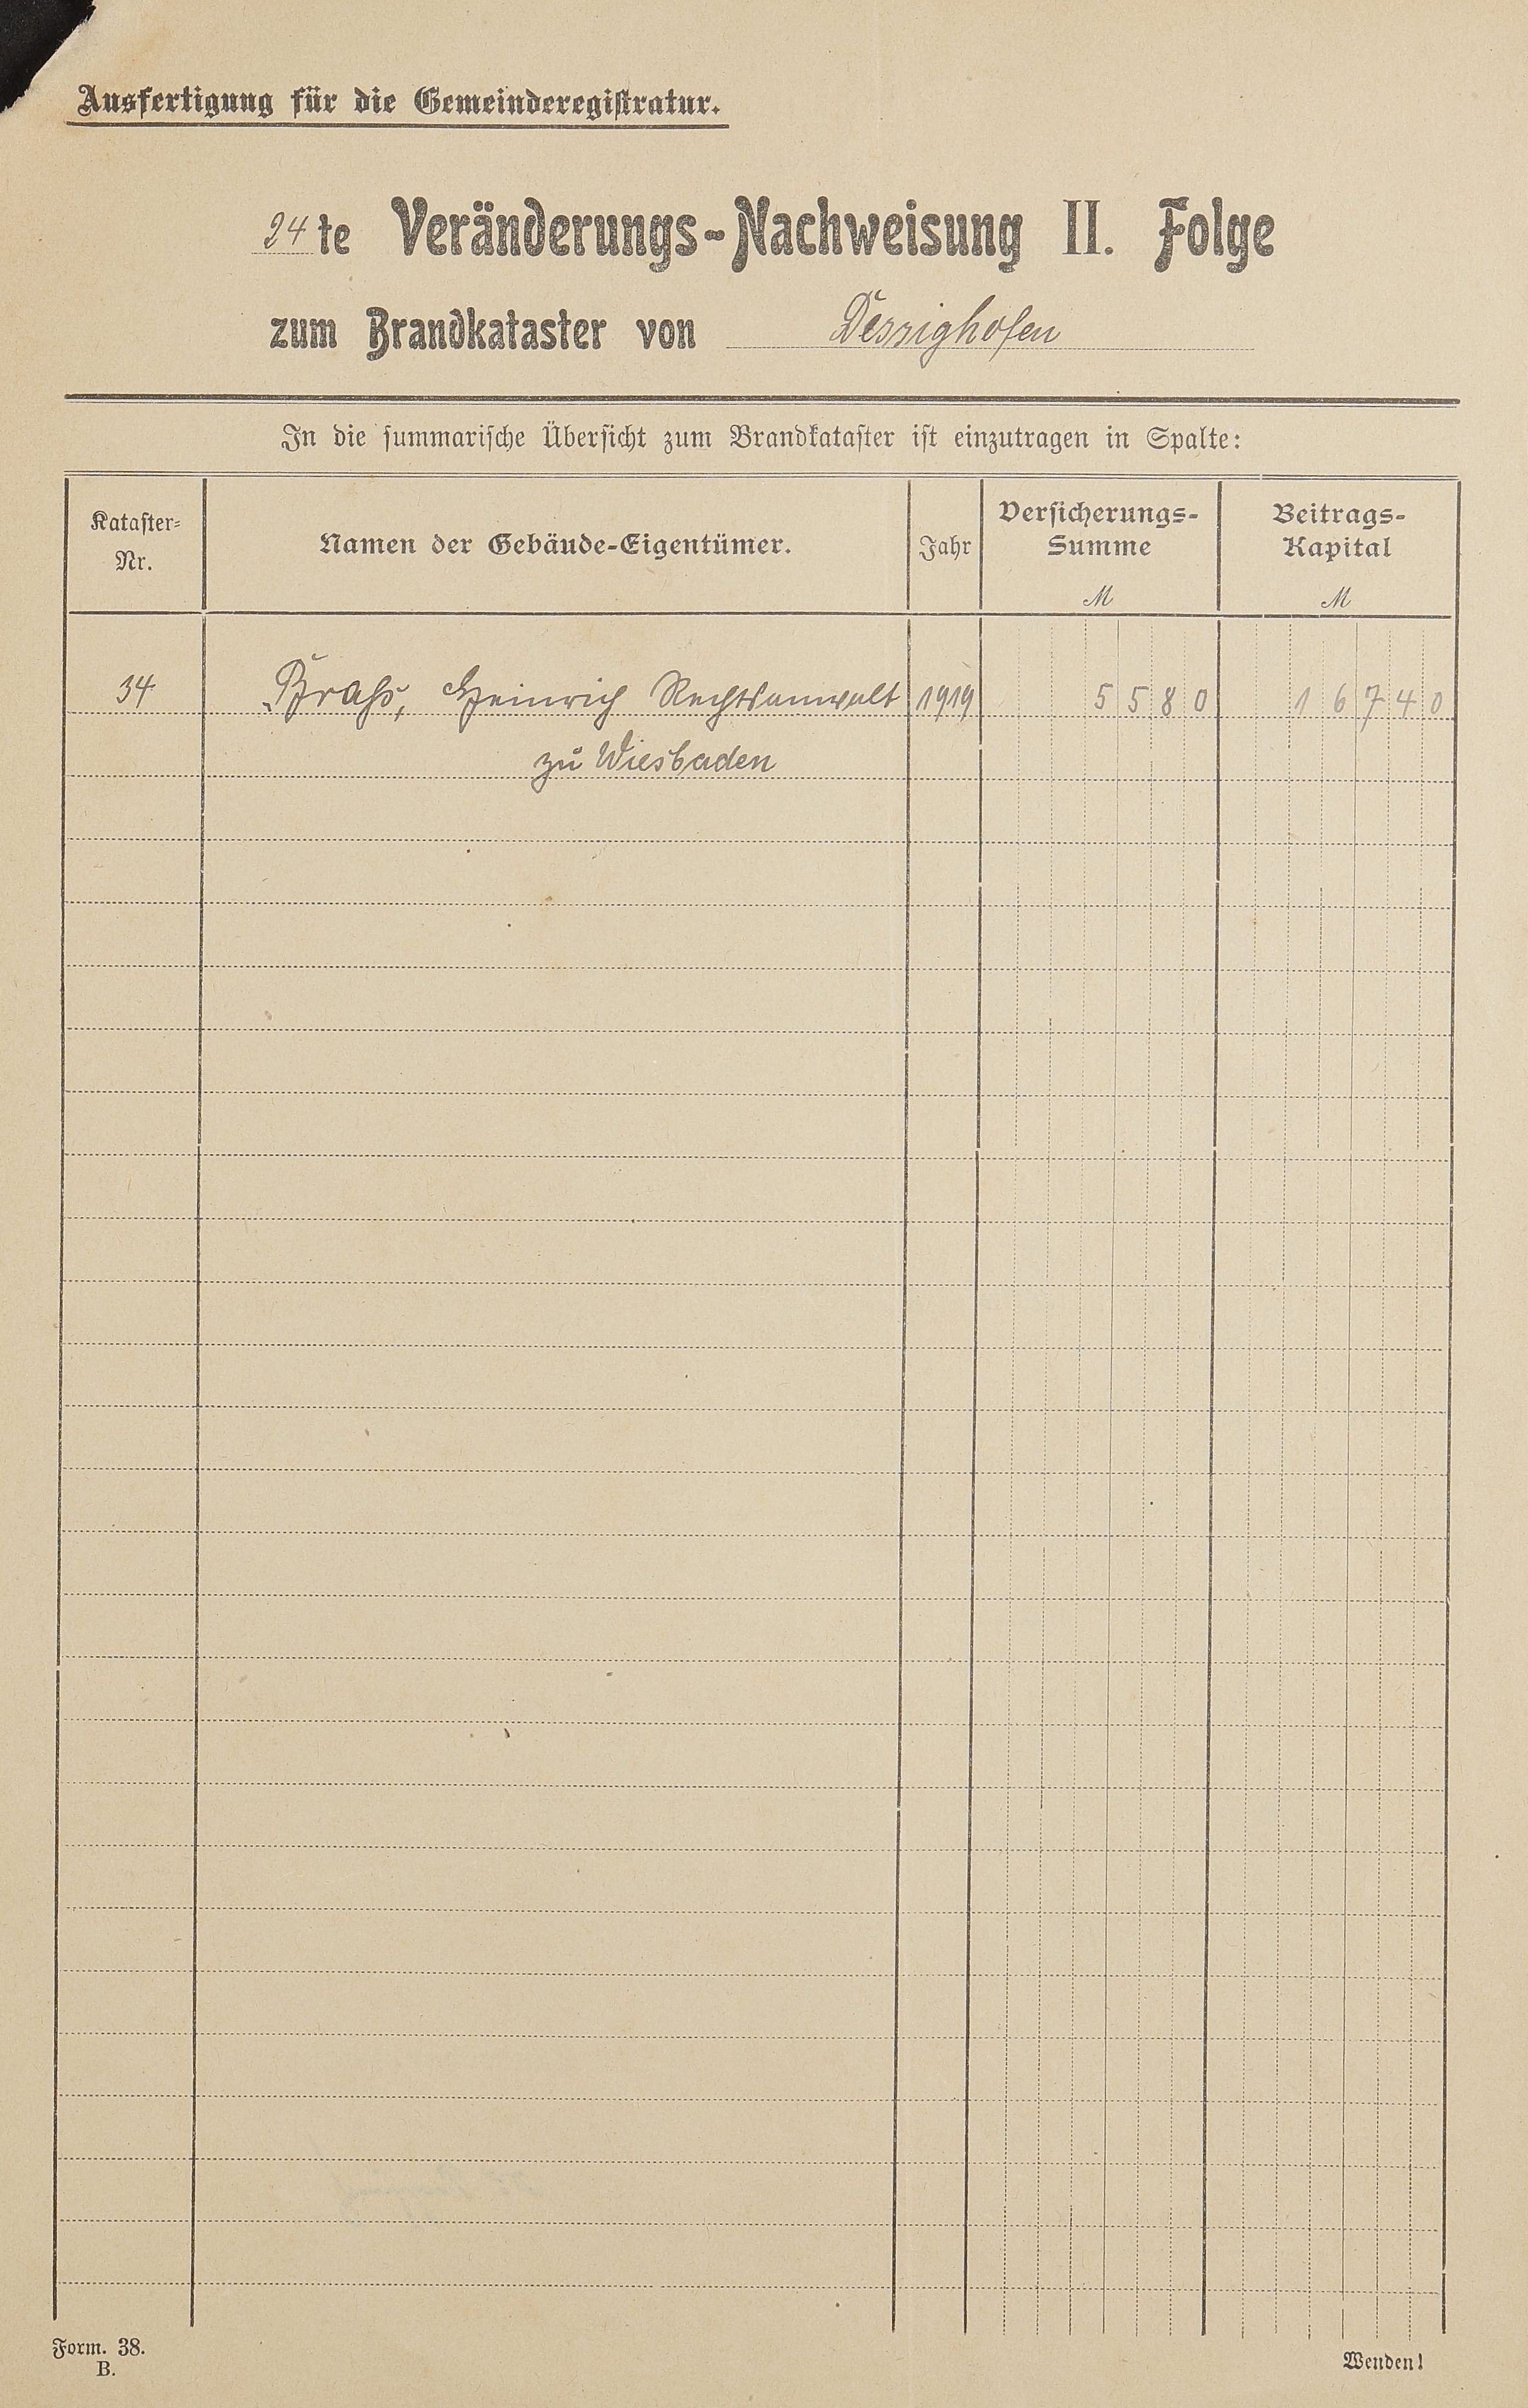 Ausfertigung für die Gemeinderegistratur.
24te Veränderungs-Nachweisung II. Folge
zum Brandkataster von Dessighofen
In die summarische Übersicht zum Brandkataster ist einzutragen in Spalte:
Kataster-Nr. Namen der Gebäude-Eigentümer. Jahr Versicherungs-Summe M Beitrags-Kapital M
34 Braß, Heinrich Rechtsanwalt 1919 5580 16740
zu Wiesbaden
Form. 38.
B.
Wenden!